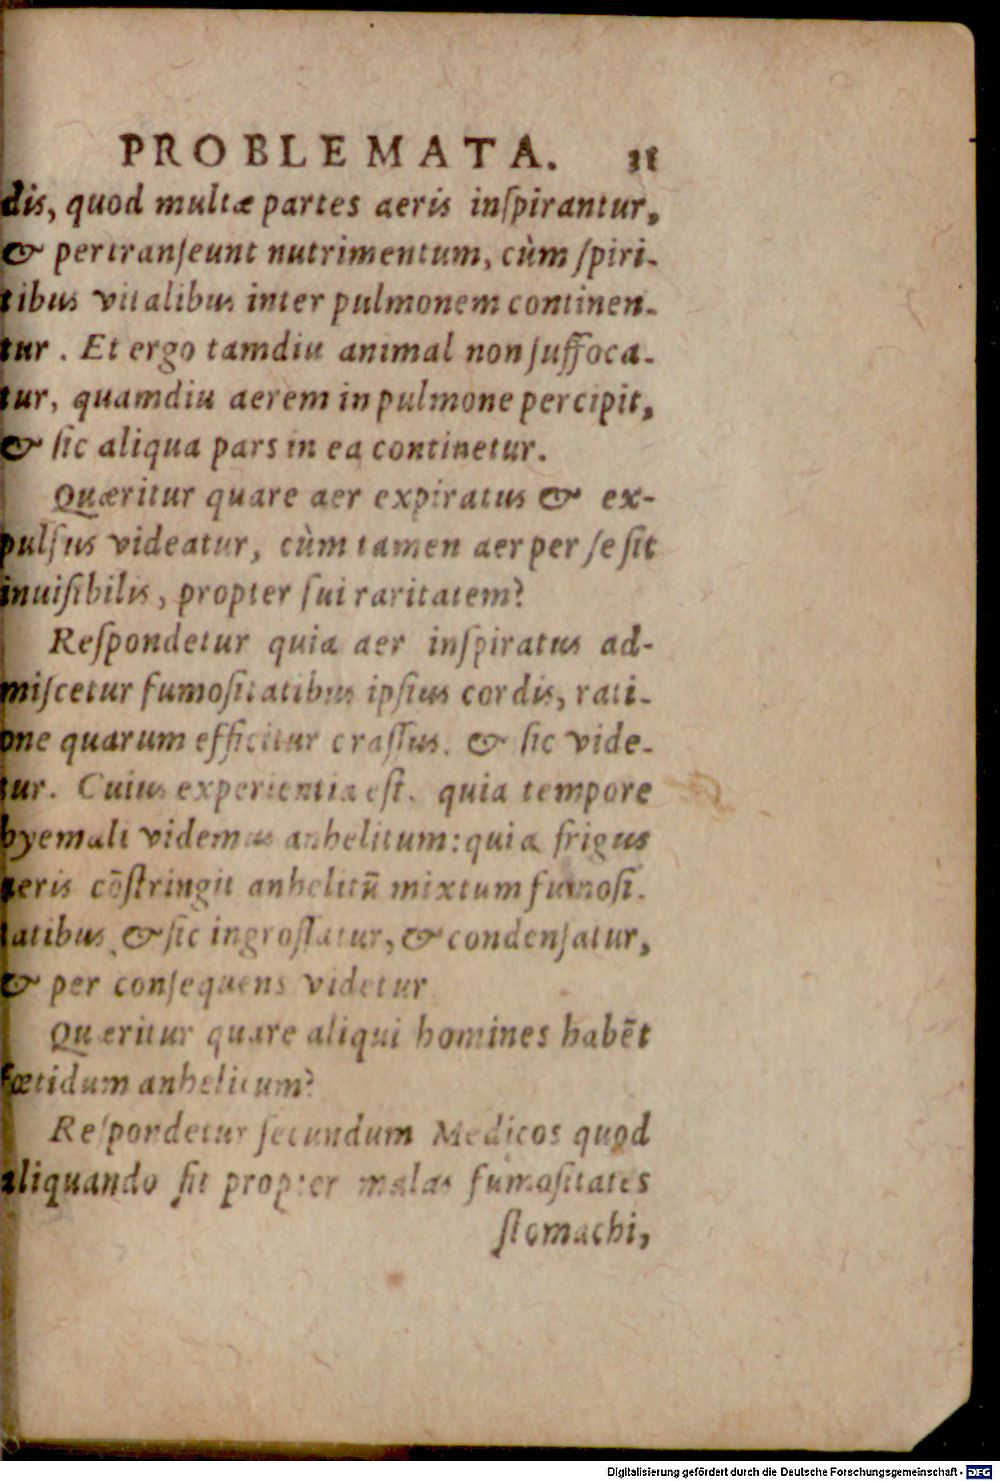 PROBLEMATA. 31
dis, quod multæ partes aeris inſpirantur,
& pertranſeunt nutrimentum, cùm ſpiri-
tibus vitalibus inter pulmonem continen-
tur. Et ergo tamdiu animal non ſuffoca-
tur, quamdiu aerem in pulmone percipit,
& ſic aliqua pars in ea continetur.
Quæritur quare aer expiratus & ex-
pulſus videatur, cùm tamen aer per ſe ſit
inuiſibilis, propter ſui raritatem?
Reſpondetur quia aer inſpiratus ad-
miſcetur fumoſitatibus ipſius cordis, rati-
one quarum efficitur craſſus. & ſic vide-
tur. Cuius experientia eſt. quia tempore
hyemali videmus anhelitum: quia frigus
aeris cõſtringit anhelitũ mixtum fumoſi-
tatibus & ſic ingroſſatur, & condenſatur,
& per conſequens videtur
Quæritur quare aliqui homines habẽt
fœtidum anhelitum?
Reſpondetur ſecundum Medicos quod
aliquando fit propter malas fumoſitates
ſtomachi,
Digitalisierung gefördert durch die Deutsche Forschungsgemeinschaft - DFG